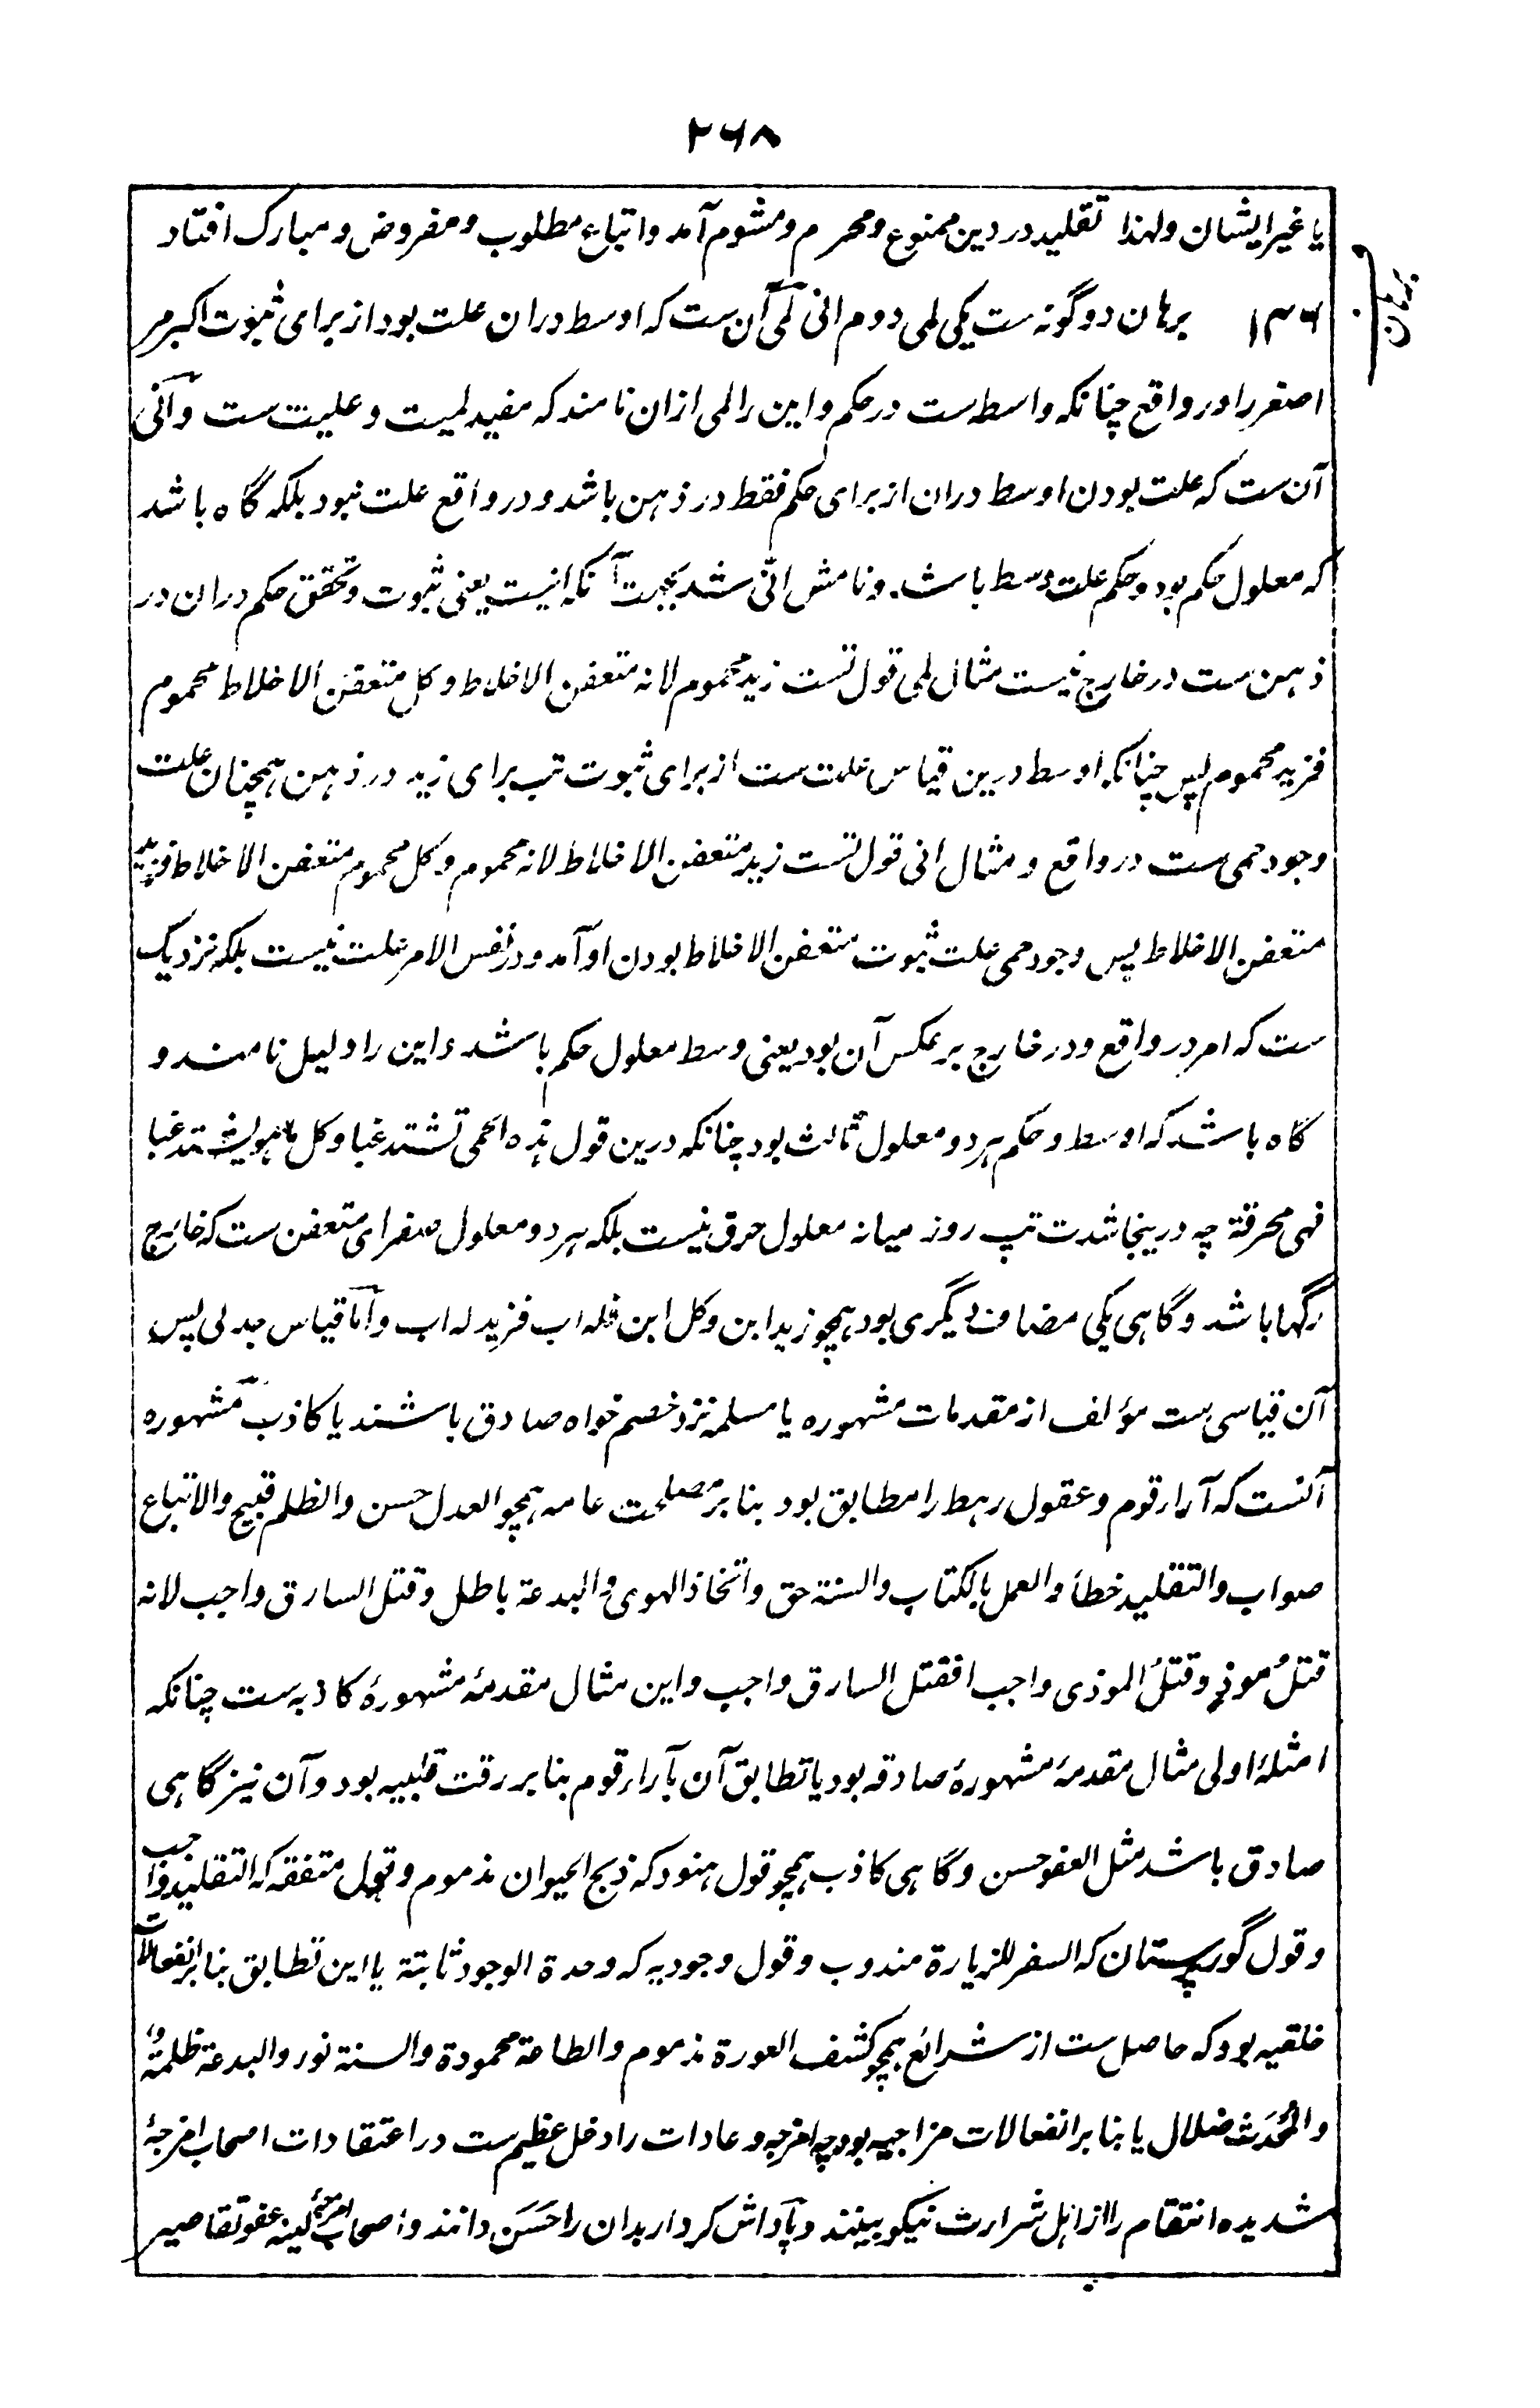 ۲۶۸
یا غیر ایشان ولہذا تقلید در دین ممنوع ومحرم ومشوم آمد واتباع مطلوب ومفروض ومبارک افتاد
برہان
۱۳۶ برہان دو گونہ ست یکی لمی دوم انی لمی آن ست کہ اوسط دران علت بود از برای ثبوت اکبر مر
اصغر را در واقع چنانکہ واسطہ ست در حکم واین را لمی ازان نامند کہ مفید لمیت وعلیت ست وانی
آن ست کہ علت بودن اوسط دران از برای حکم فقط در ذہن باشد ودر واقع علت نبود بلکہ گاہ باشد
کہ معلول حکم بود وحکم علت وسط باشد ونامش انی شد بجہت آنکہ انیت یعنی ثبوت وتحقق حکم دران در
ذہن ست در خارج نیست مثال لمی قول تست زید محموم لانہ متعفن الاخلاط وکل متعفن الاخلاط محموم
فزید محموم پس چنانکہ اوسط درین قیاس علت ست از برای ثبوت تب برای زید در ذہن ہمچنان علت
وجود حمی ست در واقع ومثال انی قول تست زید متعفن الاخلاط لانہ محموم وکل محموم متعفن الاخلاط فزید
متعفن الاخلاط پس وجود حمی علت ثبوت متعفن الاخلاط بودن او آمد ودر نفس الامر علت نیست بلکہ نزدیک
ست کہ امر در واقع ودر خارج برعکس آن بود یعنی وسط معلول حکم باشد واین را دلیل نامند و
گاہ باشد کہ اوسط وحکم ہر دو معلول ثالث بود چنانکہ درین قول ہذہ الحمی تشتد غبا وکل ما ہو یشتد غبا
فہی محرقۃ چہ درینجا شدت تپ روز میانہ معلول حرق نیست بلکہ ہر دو معلول صفرای متعفن ست کہ خارج
رگہا باشد وگاہی یکی مضاف دیگری بود ہمچو زید ابن وکل ابن فلہ اب فزید لہ اب واما قیاس جدلی پس
آن قیاسی ست مؤلف از مقدمات مشہورہ یا مسلمہ نزد خصم خواہ صادق باشند یا کاذب مشہورہ
آنست کہ آراء قوم وعقول رہط را مطابق بود بنا بر مصلحت عامہ ہمچو العدل حسن والظلم قبیح والاتباع
صواب والتقلید خطأ والعمل بالکتاب والسنۃ حق واتخاذ الہوی والبدعۃ باطل وقتل السارق واجب لانہ
قتلُ موذٍ وقتلُ الموذی واجب فقتل السارق واجب واین مثال مقدمۂ مشہورۂ کاذبہ ست چنانکہ
امثلۂ اولی مثال مقدمۂ مشہورۂ صادقہ بود یا تطابق آن بآراء قوم بنا بر رقت قلبیہ بود وآن نیز گاہی
صادق باشد مثل العفو حسن وگاہی کاذب ہمچو قول ہنود کہ ذبح الحیوان مذموم وقول متفقہ کہ التقلید واجب
وقول گور پرستان کہ السفر للزیارۃ مندوب وقول وجودیہ کہ وحدۃ الوجود ثابتۃ یا این تطابق بنا بر انفعالات
خلقیہ بود کہ حاصل ست از شرائع ہمچو کشف العورۃ مذموم والطاعۃ محمودۃ والسنۃ نور والبدعۃ ظلمۃ
والمُحْدَث ضلال یا بنا بر انفعالات مزاجیہ بود چہ امزجہ وعادات را دخل عظیم ست در اعتقادات اصحاب امزجۂ
شدیدہ انتقام را از اہل شرارت نیکو بینند وپاداش کردار بدان را حَسَن دانند واصحاب امزجۂ لینہ عفو تقاصیر